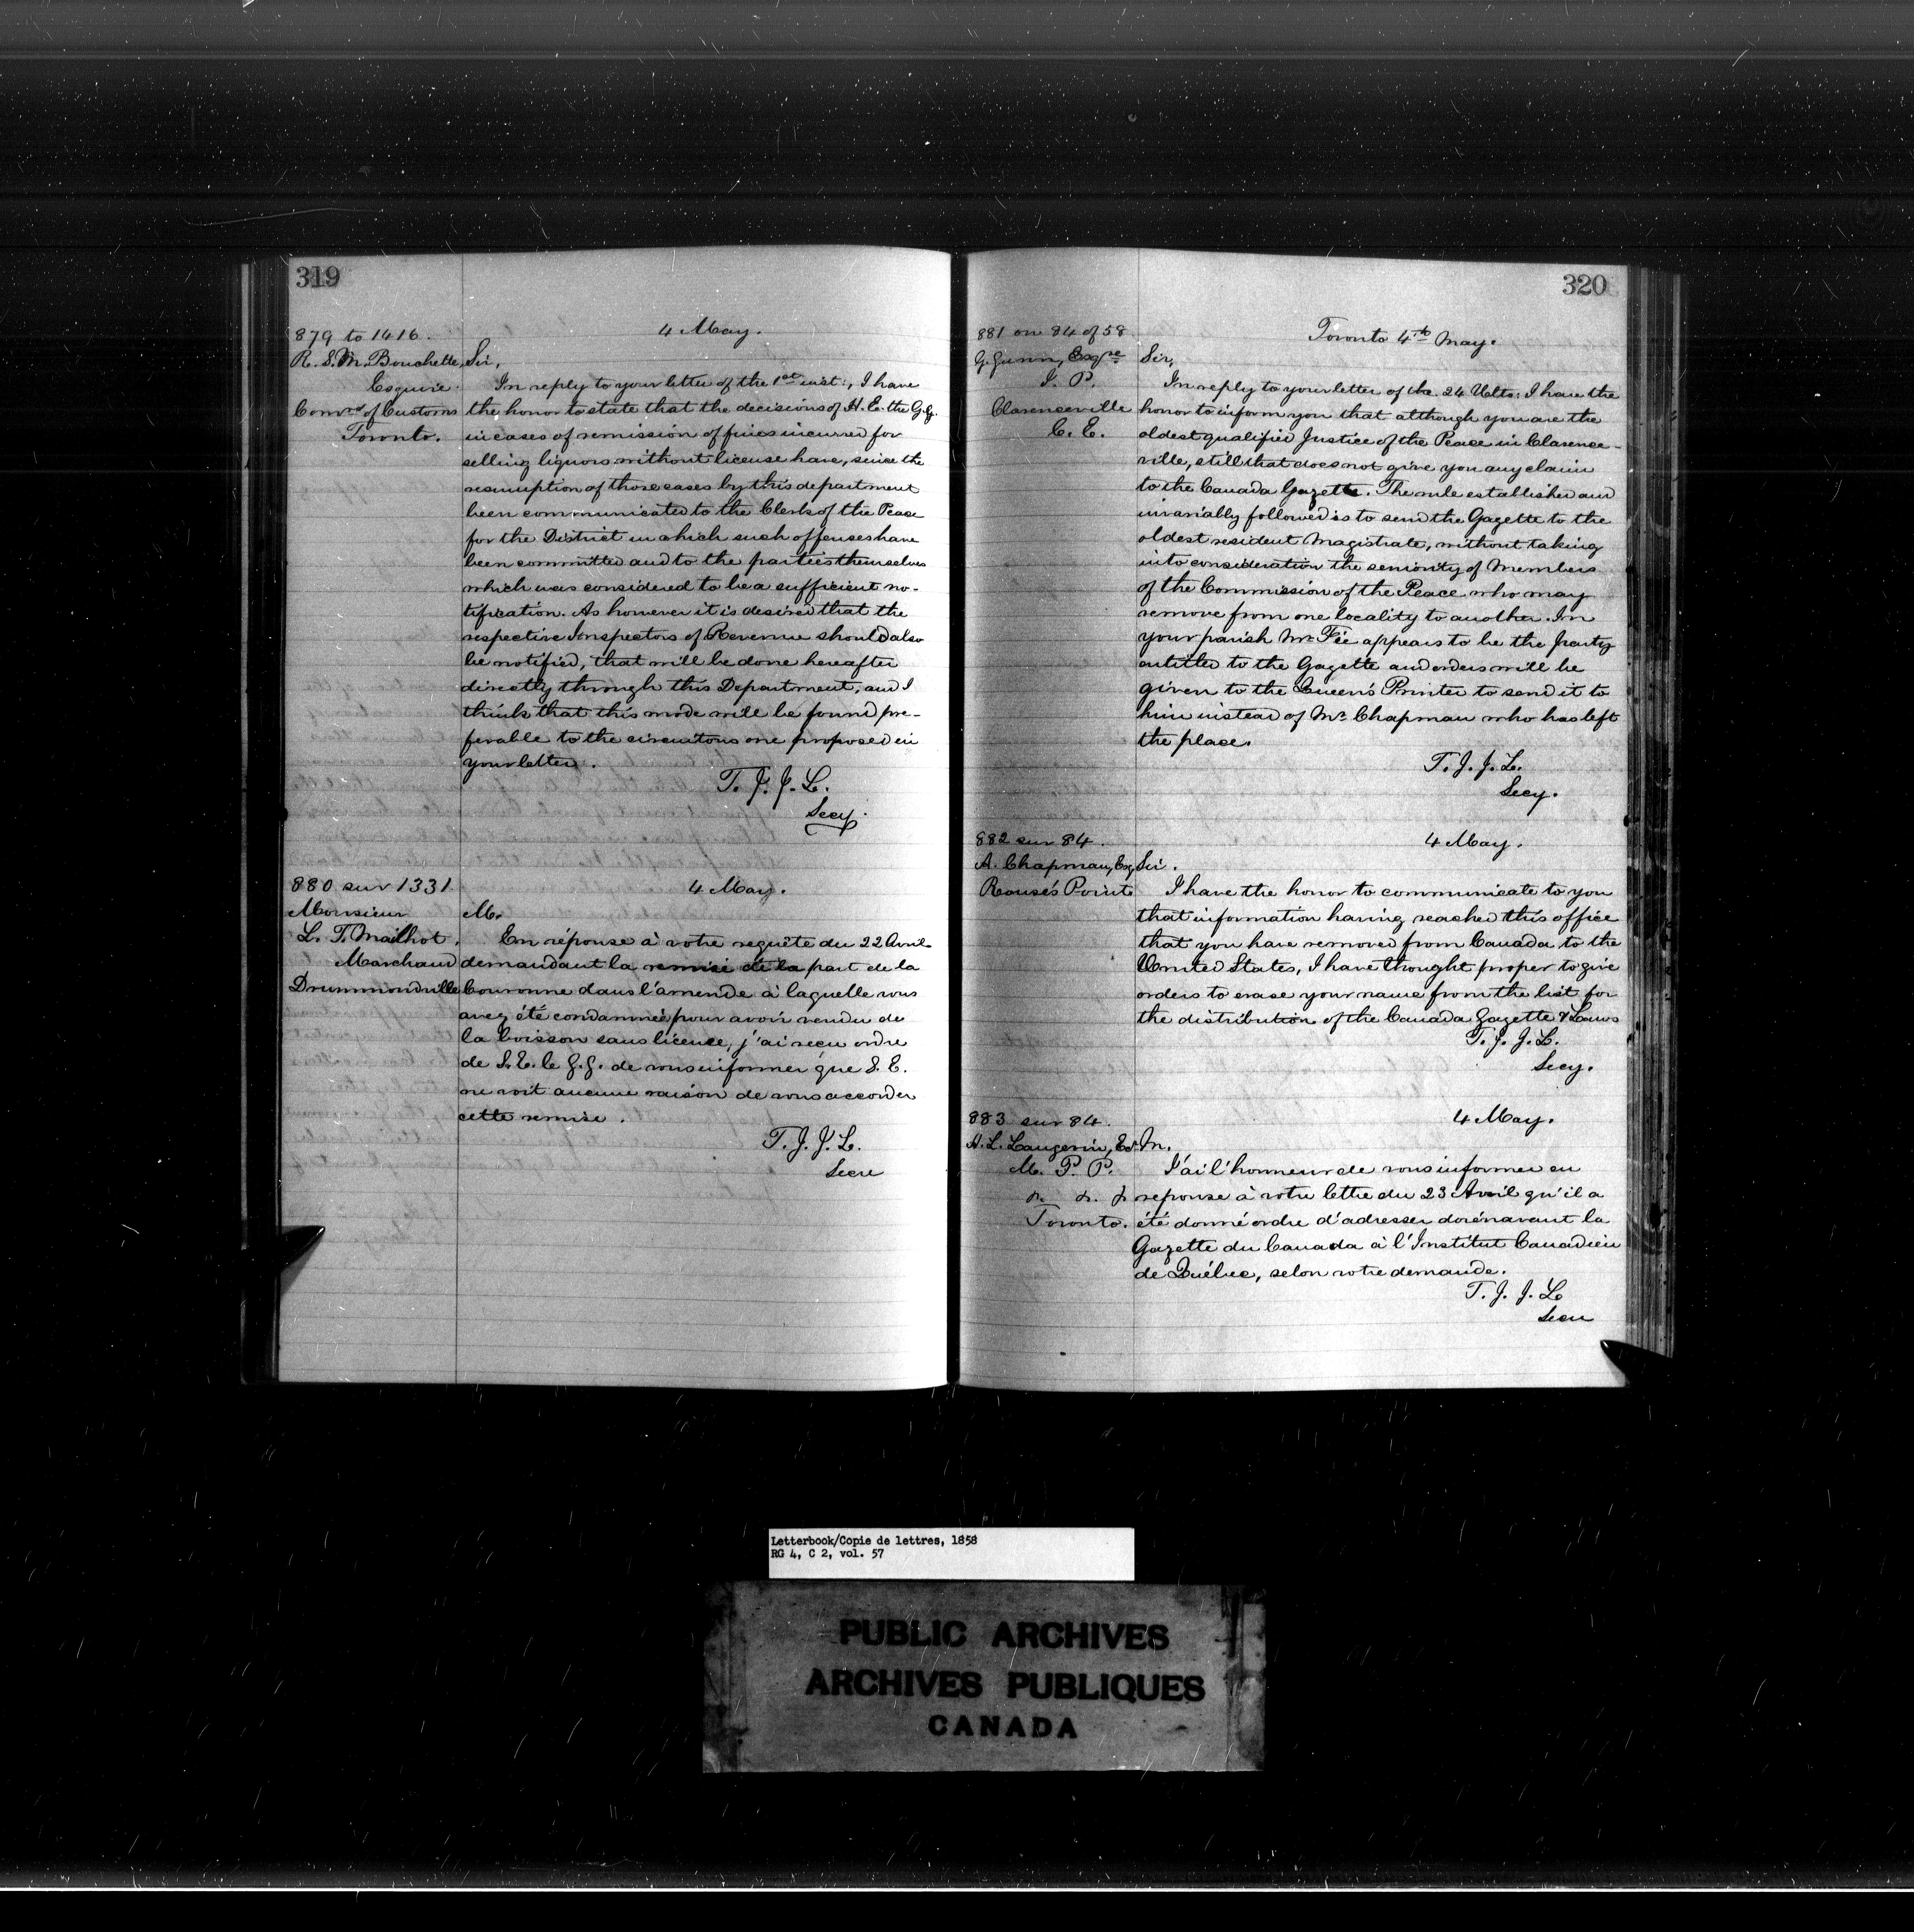 319
879 to 1416.
R. S. M. Bouchette,
Esquire.
Comrs of Customs
Toronto.
4 May.
Sir,
In reply to your letter of the 1st inst:, I have
the honor to state that the decisions of H. E. the G. G.
in cases of remission of fines incurred for
selling liquors without license have, since the
resumption of those cases by this department
been communicated to the Clerk of the Peace
for the District in which such offenses have
been committed and to the parties themselves
which was considered to be a sufficient no-
tification. As however it is desired that the
respective Inspectors of Revenue should also
be notified, that will be done hereafter
directly through this Department, and I
think that this mode will be found pre-
ferable to the circuitous one proposed in
your letter.
T. J. J. L.
Secy.
880 sur 1331
Monsieur
L. T. Mailhot.
Marchand
Drummondville
4 May.
M.
En réponse à votre requête du 22 Avril
demandant la remise de la part de la
Couronne dans l'amende à laquelle vous
avez été condamné pour avoir vendu de
la boisson sans licence, j'ai reçu ordre
de S. E. le G. G. de vous informer que S. E.
ne voit aucune raison de vous accorder
cette remise.
T. J. J. L.
Secre
320
881 on 84 of 58
G. Gunn, Esqre
J. P.
Clarenceville
C. E.
Toronto 4th May.
Sir,
In reply to your letter of the 24 Ulto: I have the
honor to inform you that although you are the
oldest qualified Justice of the Peace in Clarence-
ville, still that does not give you any claim
to the Canada Gazette. The rule established and
invariably followed is to send the Gazette to the
oldest resident Magistrate, without taking
into consideration the seniority of Members
of the Commission of the Peace who may
remove from one locality to another. In
your parish Mr. Fée appears to be the party
entitled to the Gazette and orders will be
given to the Queen's Printer to send it to
him instead of Mr. Chapman who has left
the place.
T. J. J. L.
Secy.
882 sur 84.
A. Chapman, Esq
Rouse's Point
4 May.
Sir.
I have the honor to communicate to you
that information having reached this office
that you have removed from Canada to the
United States, I have thought proper to give
orders to erase your name from the list for
the distribution of the Canada Gazette & Laws
T. J. J. L.
Secy.
883 sur 84.
H. L. Langevin, Ecr
M. P. P.
&. &. &
Toronto.
4 May.
M.
J'ai l'honneur de vous informer en
reponse à votre lettre du 23 Avril qu'il a
été donné ordre d'adresser dorénavant la
Gazette du Canada à l'Institut Canadien
de Québec, selon votre demande.
T. J. J. L.
Secre
Letterbook/Copie de lettres, 1858
RG 4, C 2, vol. 57
PUBLIC ARCHIVES
ARCHIVES PUBLIQUES
CANADA